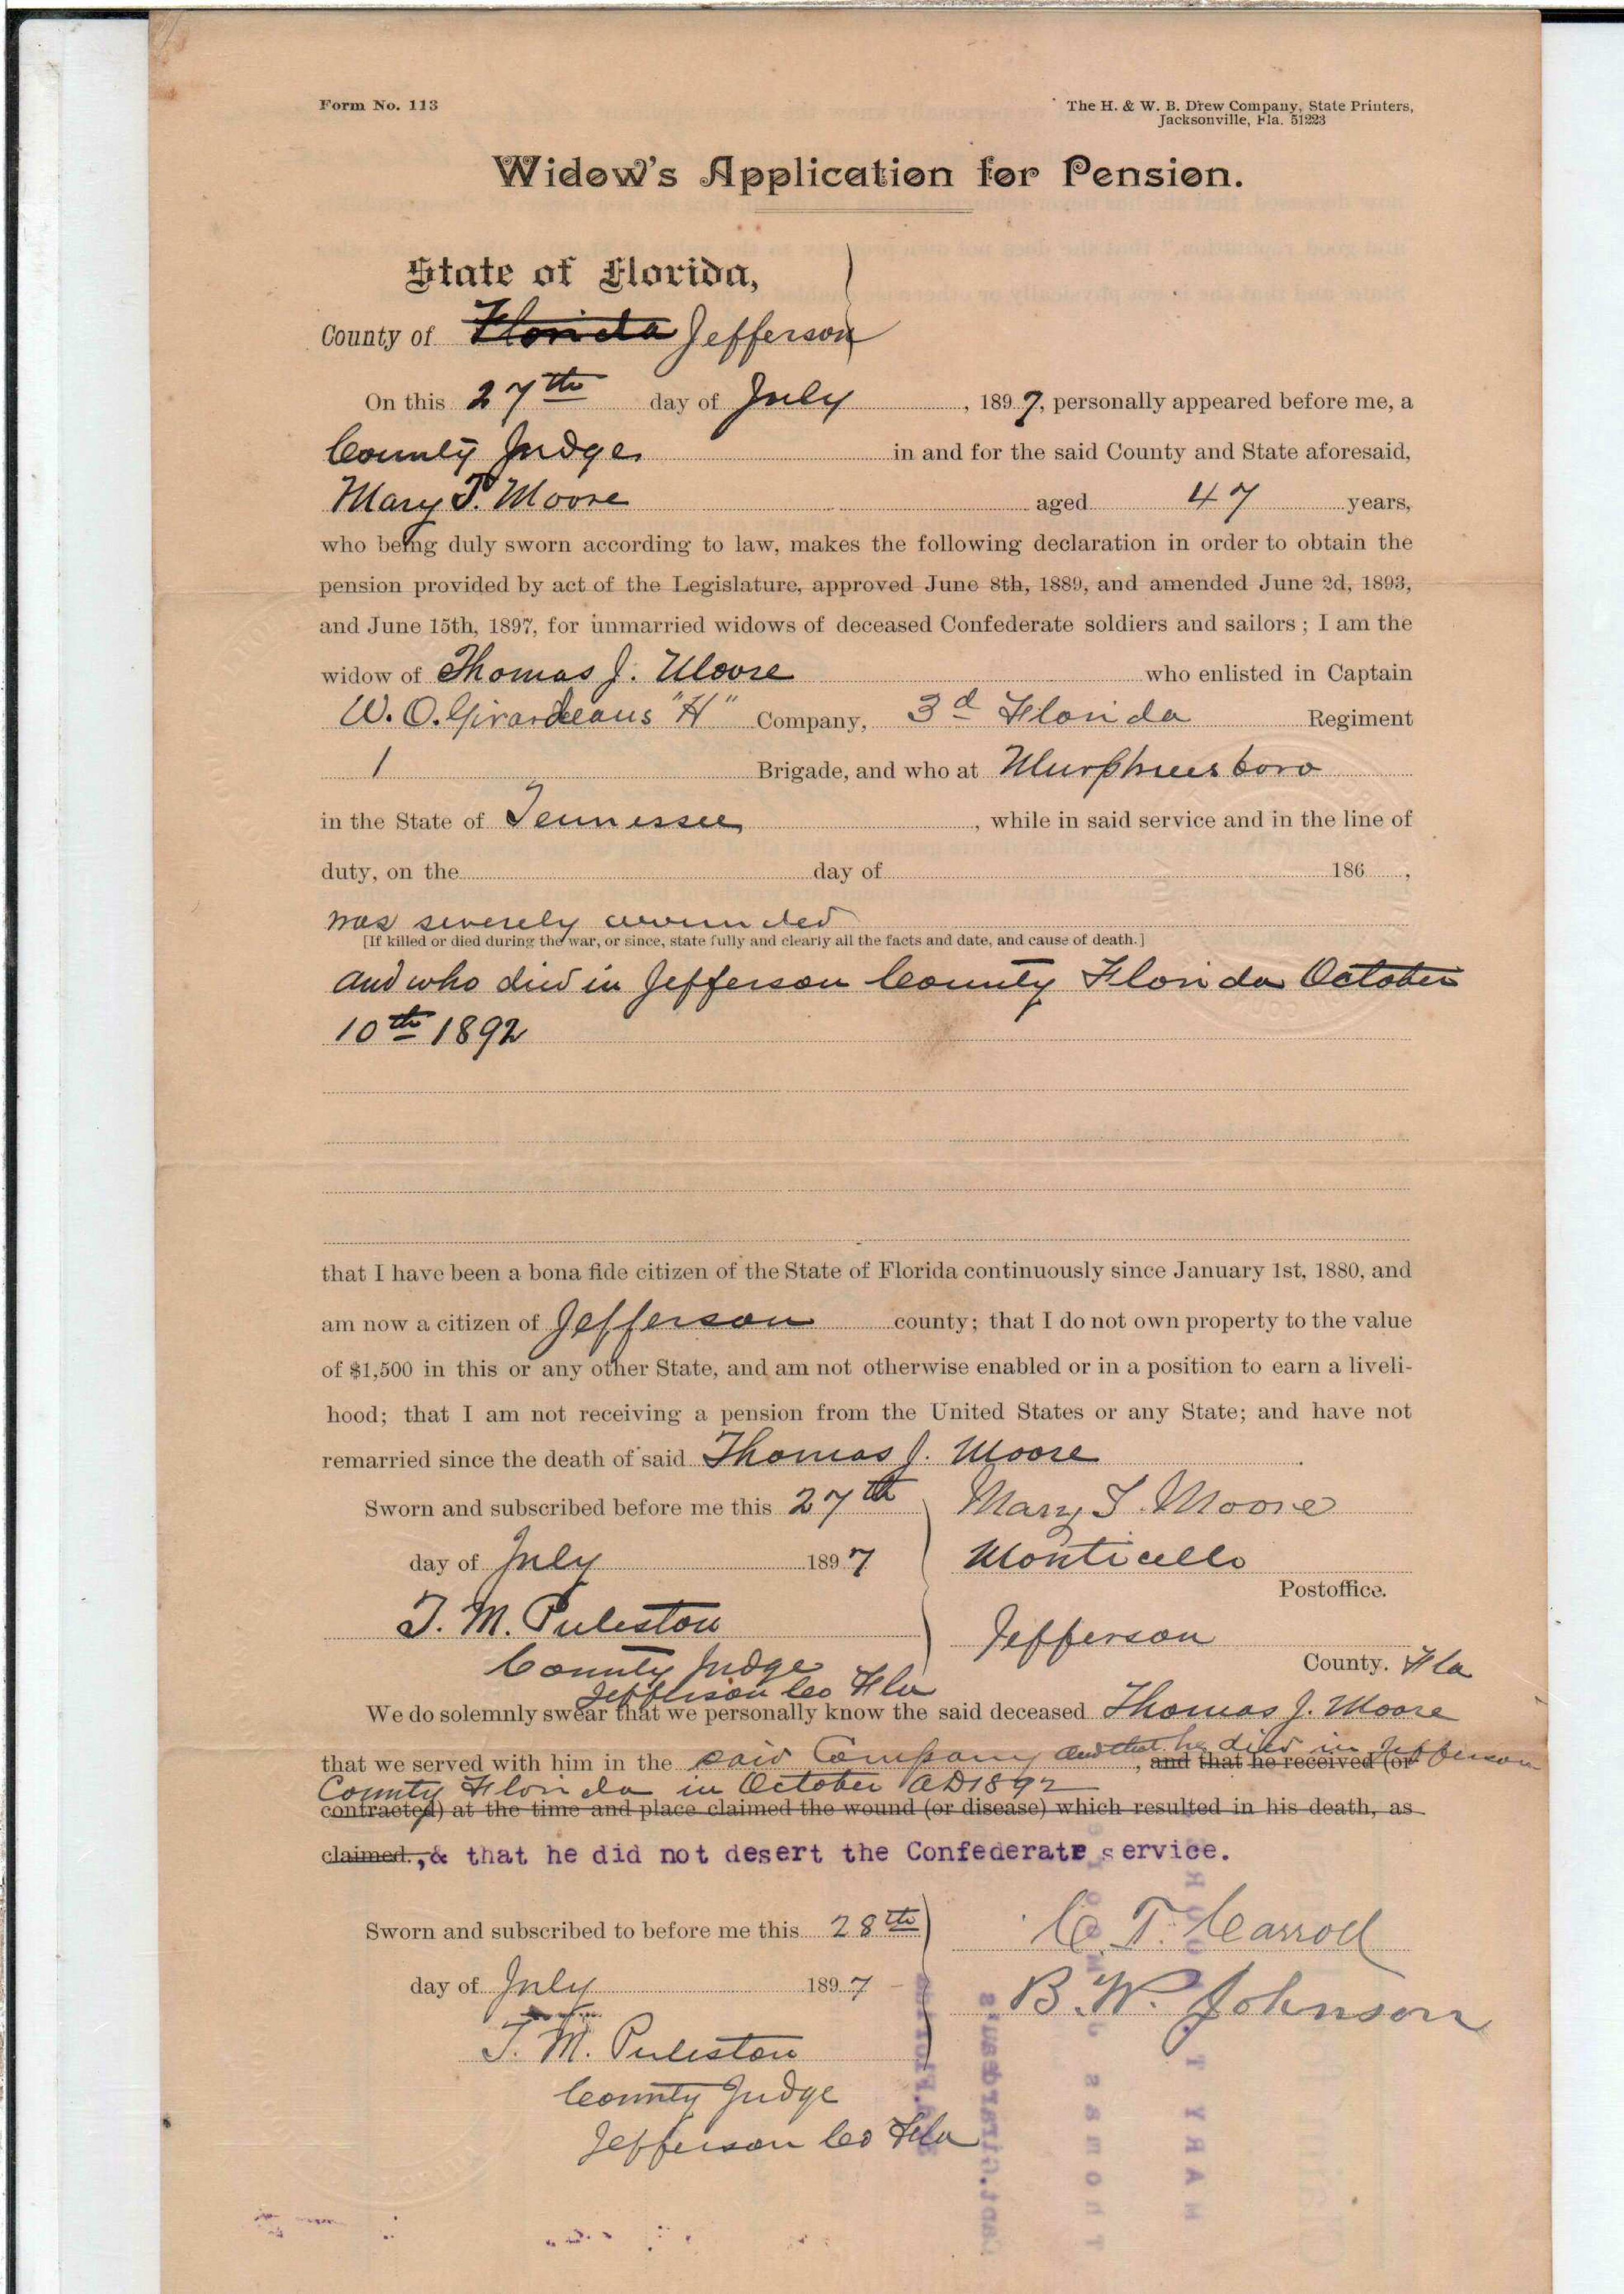 Form No. 113
The H. & W. B. Drew Company, State Printers,
Jacksonville, Fla. 51223
Widow's Application for Pension.
State of Florida,
County of Florida Jefferson
On this 27th day of July, 1897, personally appeared before me, a
County Judge in and for the said County and State aforesaid,
Mary T. Moore aged 47 years,
who being duly sworn according to law, makes the following declaration in order to obtain the
pension provided by act of the Legislature, approved June 8th, 1889, and amended June 2d, 1893,
and June 15th, 1897, for unmarried widows of deceased Confederate soldiers and sailors; I am the
widow of Thomas J. Moore who enlisted in Captain
W. O. Girardeaus "H" Company, 3d Florida Regiment
1 Brigade, and who at Murphreesboro
in the State of Tennessee, while in said service and in the line of
duty, on the day of 186 ,
was severely wounded
[If killed or died during the war, or since, state fully and clearly all the facts and date, and cause of death.]
and who died in Jefferson County Florida October
10th 1892
that I have been a bona fide citizen of the State of Florida continuously since January 1st, 1880, and
am now a citizen of Jefferson county; that I do not own property to the value
of $1,500 in this or any other State, and am not otherwise enabled or in a position to earn a liveli-
hood; that I am not receiving a pension from the United States or any State; and have not
remarried since the death of said Thomas J. Moore.
Sworn and subscribed before me this 27th
day of July 1897
T. M. Puleston
County Judge
Jefferson Co Fla
Mary T. Moore
Monticello
Postoffice.
Jefferson
County. Fla
We do solemnly swear that we personally know the said deceased Thomas J. Moore
that we served with him in the said Company and that he died in Jefferson, and that he received (or
County Florida in October AD 1892
contracted) at the time and place claimed the wound (or disease) which resulted in his death, as
claimed.,& that he did not desert the Confederate service.
Sworn and subscribed to before me this 28th
day of July 1897
T. M. Puleston
County Judge
Jefferson Co Fla
C. T. Carroll
B. W. Johnson